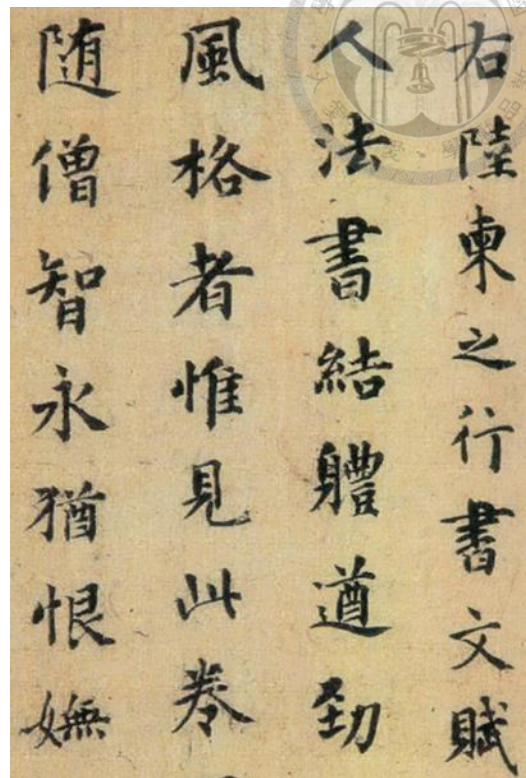 右陸柬之行書文賦
人法書結軆遒勁
風格者惟見此卷
随僧智永猶恨嫵